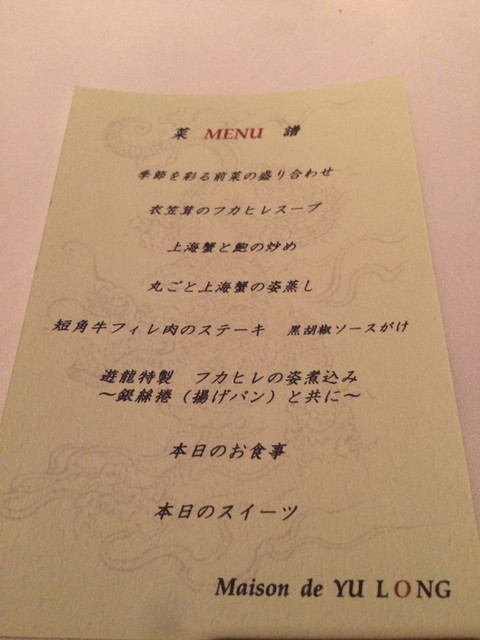 菜 MENU 譜
季節を彩る前菜の盛り合わせ
衣笠茸のフカヒレスープ
上海蟹と鮑の炒め
丸ごと上海蟹の姿蒸し
短角牛フィレ肉のステーキ 黒胡椒ソースがけ
遊龍特製 フカヒレの姿煮込み
〜銀絲捲（揚げパン）と共に〜
本日のお食事
本日のスイーツ
Maison de YU LONG